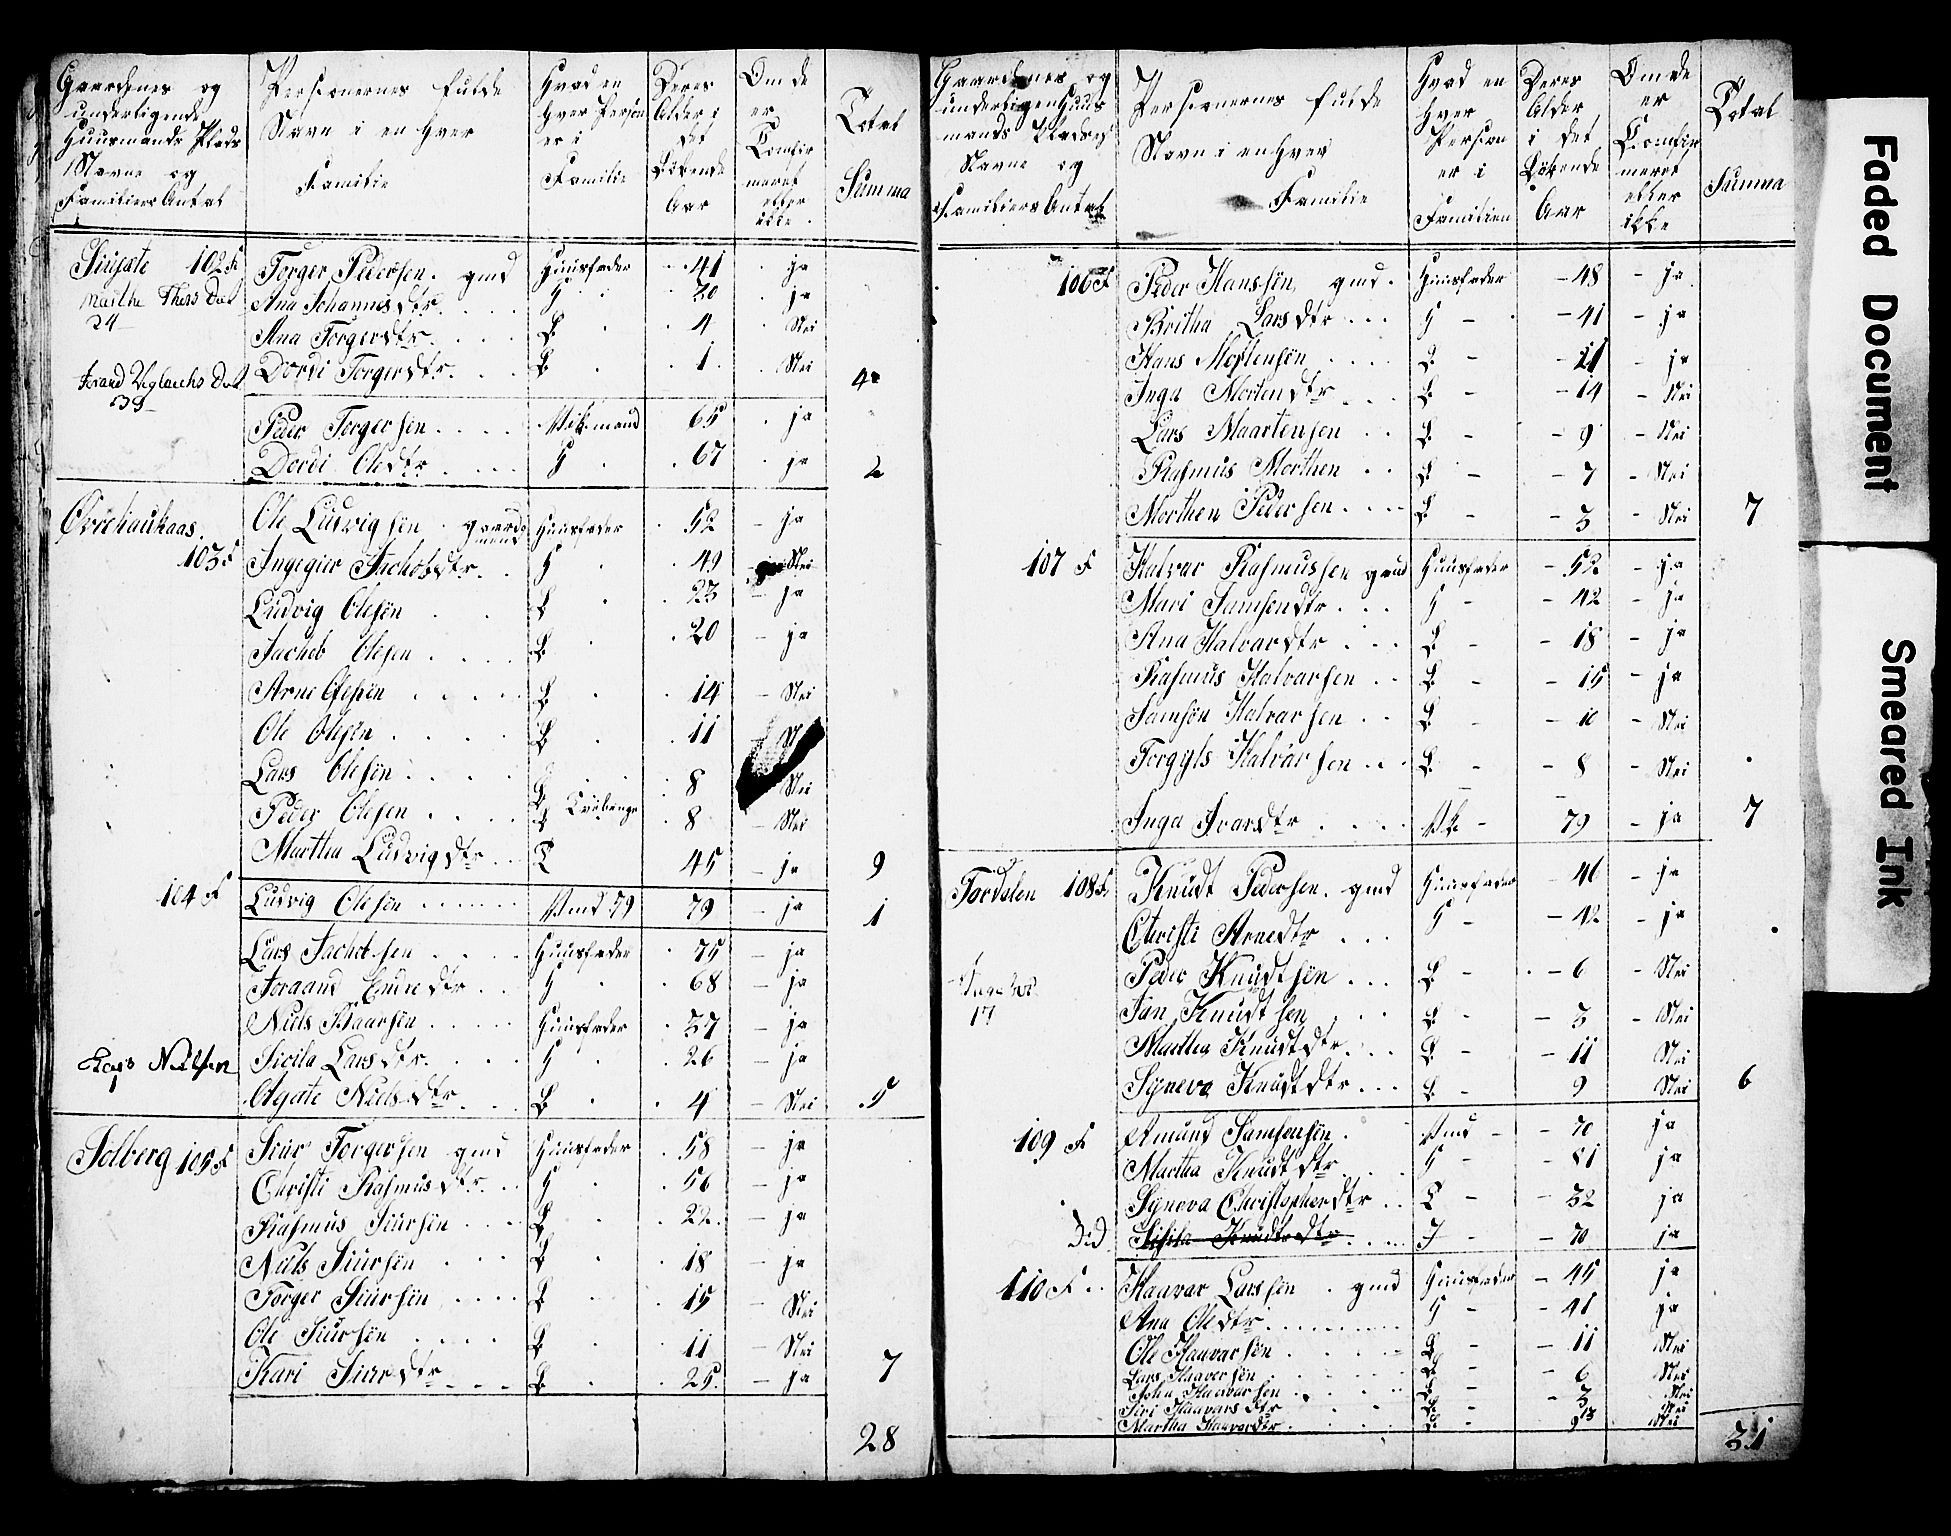 Gaardenes og
underligende
Huusmands Plads
Navne og
Familiers Antal
Personernes fulde
Navn i en hver
Familie
Hvad en
hver Person
er i
Familie
Deres
Alder i
det
Löbende
Aar
Om de
er
Comfir
meret
eller
ikke.
Total
Summa
102 F Torger Pedersen. gmd Huusfader 41 ja
Marthe Dat
24
Ana Johannisdtr. H 20 ja
Ana Torgerdtr. B 4 Nei
Dordi Torgerdtr. B 1. Nei 4
Dat
Peder Torgersen 65 ja
Dordi Oledtr H 67 ja 2
Ole Ludvigsen gaards mand Huusfader 52 ja
103 F Ingegier Jachobsdtr. H 49 Nei
Ludvig Olesön B 23 ja
Jachob Olesen B 20 ja
Arne Olesön B 14 Nei
Ole Olesön B 11 N
Lars Olesön B 8 Nei
Peder Olesen B 8 Nei
Martha Ludvigdtr T 45 ja 9
104 F Ludvig Olesön 79 ja 1
Lars Jachobsen Huusfader 75 ja
H 68 ja
Niels Huusfader 37 ja
Nielsen
1
Sicila Larsdtr. H 26 ja
Agate Nielsdtr B 4 Nei 5
Solberg 105 F Siur Torgersen gmd Huusfader 58 ja
Christi Rasmusdtr. H 56 ja
Rasmus Siursön B 22. ja
Niels Siursön B 18 ja
Torger Siursön B 15 Nei
Ole Siursön B 11 Nei
Kari Siurdtr B 25. ja 7
28
Gaardenes og
underligen Huus
mands Pladses
Navne og
Familiers Antal
Personernes fulde
Navn i en hver
Familie
Hvad en
hver
Person
er i
Familien
Deres
Alder
i det
Löbende
Aar
Om de
er
Comfir
meret
eller
ikke
Total
Summa
106 F Peder Hanssön gmd. Huusfader 48 ja
Britha Larsdtr H 41 ja
Hans Mortensön B 21 ja
Inga Mortendtr B 14 Nei
Lars Maartensen B 9 Nei
Rasmus Morthen B 7 Nei
Morthen Pedersen B 3 Nei 7
107 F Halvar Rasmussen gmd Huusfader 52 ja
Mari Samsendtr H 42 ja
Ana Halvardtr B 18 ja
Rasmus Halvarsen B 15 ja
Samsön Halvarsen B Nei
Torgyls Halvarsen B 8 Nei
Inga Ivarsdtr 79 ja 7
Tordalen 108 F Knudt Pedersen. gmd Huusfader 46 ja
Christi Arnedtr H 42 ja
Peder Knudtsön B 6 Nei
17
Jan Knudtsen B 3 Nei
Martha Knudtdtr B 11 Nei
Syneva Knudtdtr B 9 Nei 6
109 F Amund Samsensön 70 ja
Martha Knudtdtr H 81 ja
Syneva Christopherdtr T 32 ja
Död Sisila Knudtsdtr I 70 ja
110 F Haavar Larssen gmd Huusfader 45 ja
Ana Oledtr H 41 ja
Ole Haavarsön B 11 Nei
Lars Haaversön B 6 Nei
John Haavarsen B 3 Nei
Siri Haavarsdtr B Nei
Martha Haavardtr B Nei
31
Faded Document
Smeared Ink